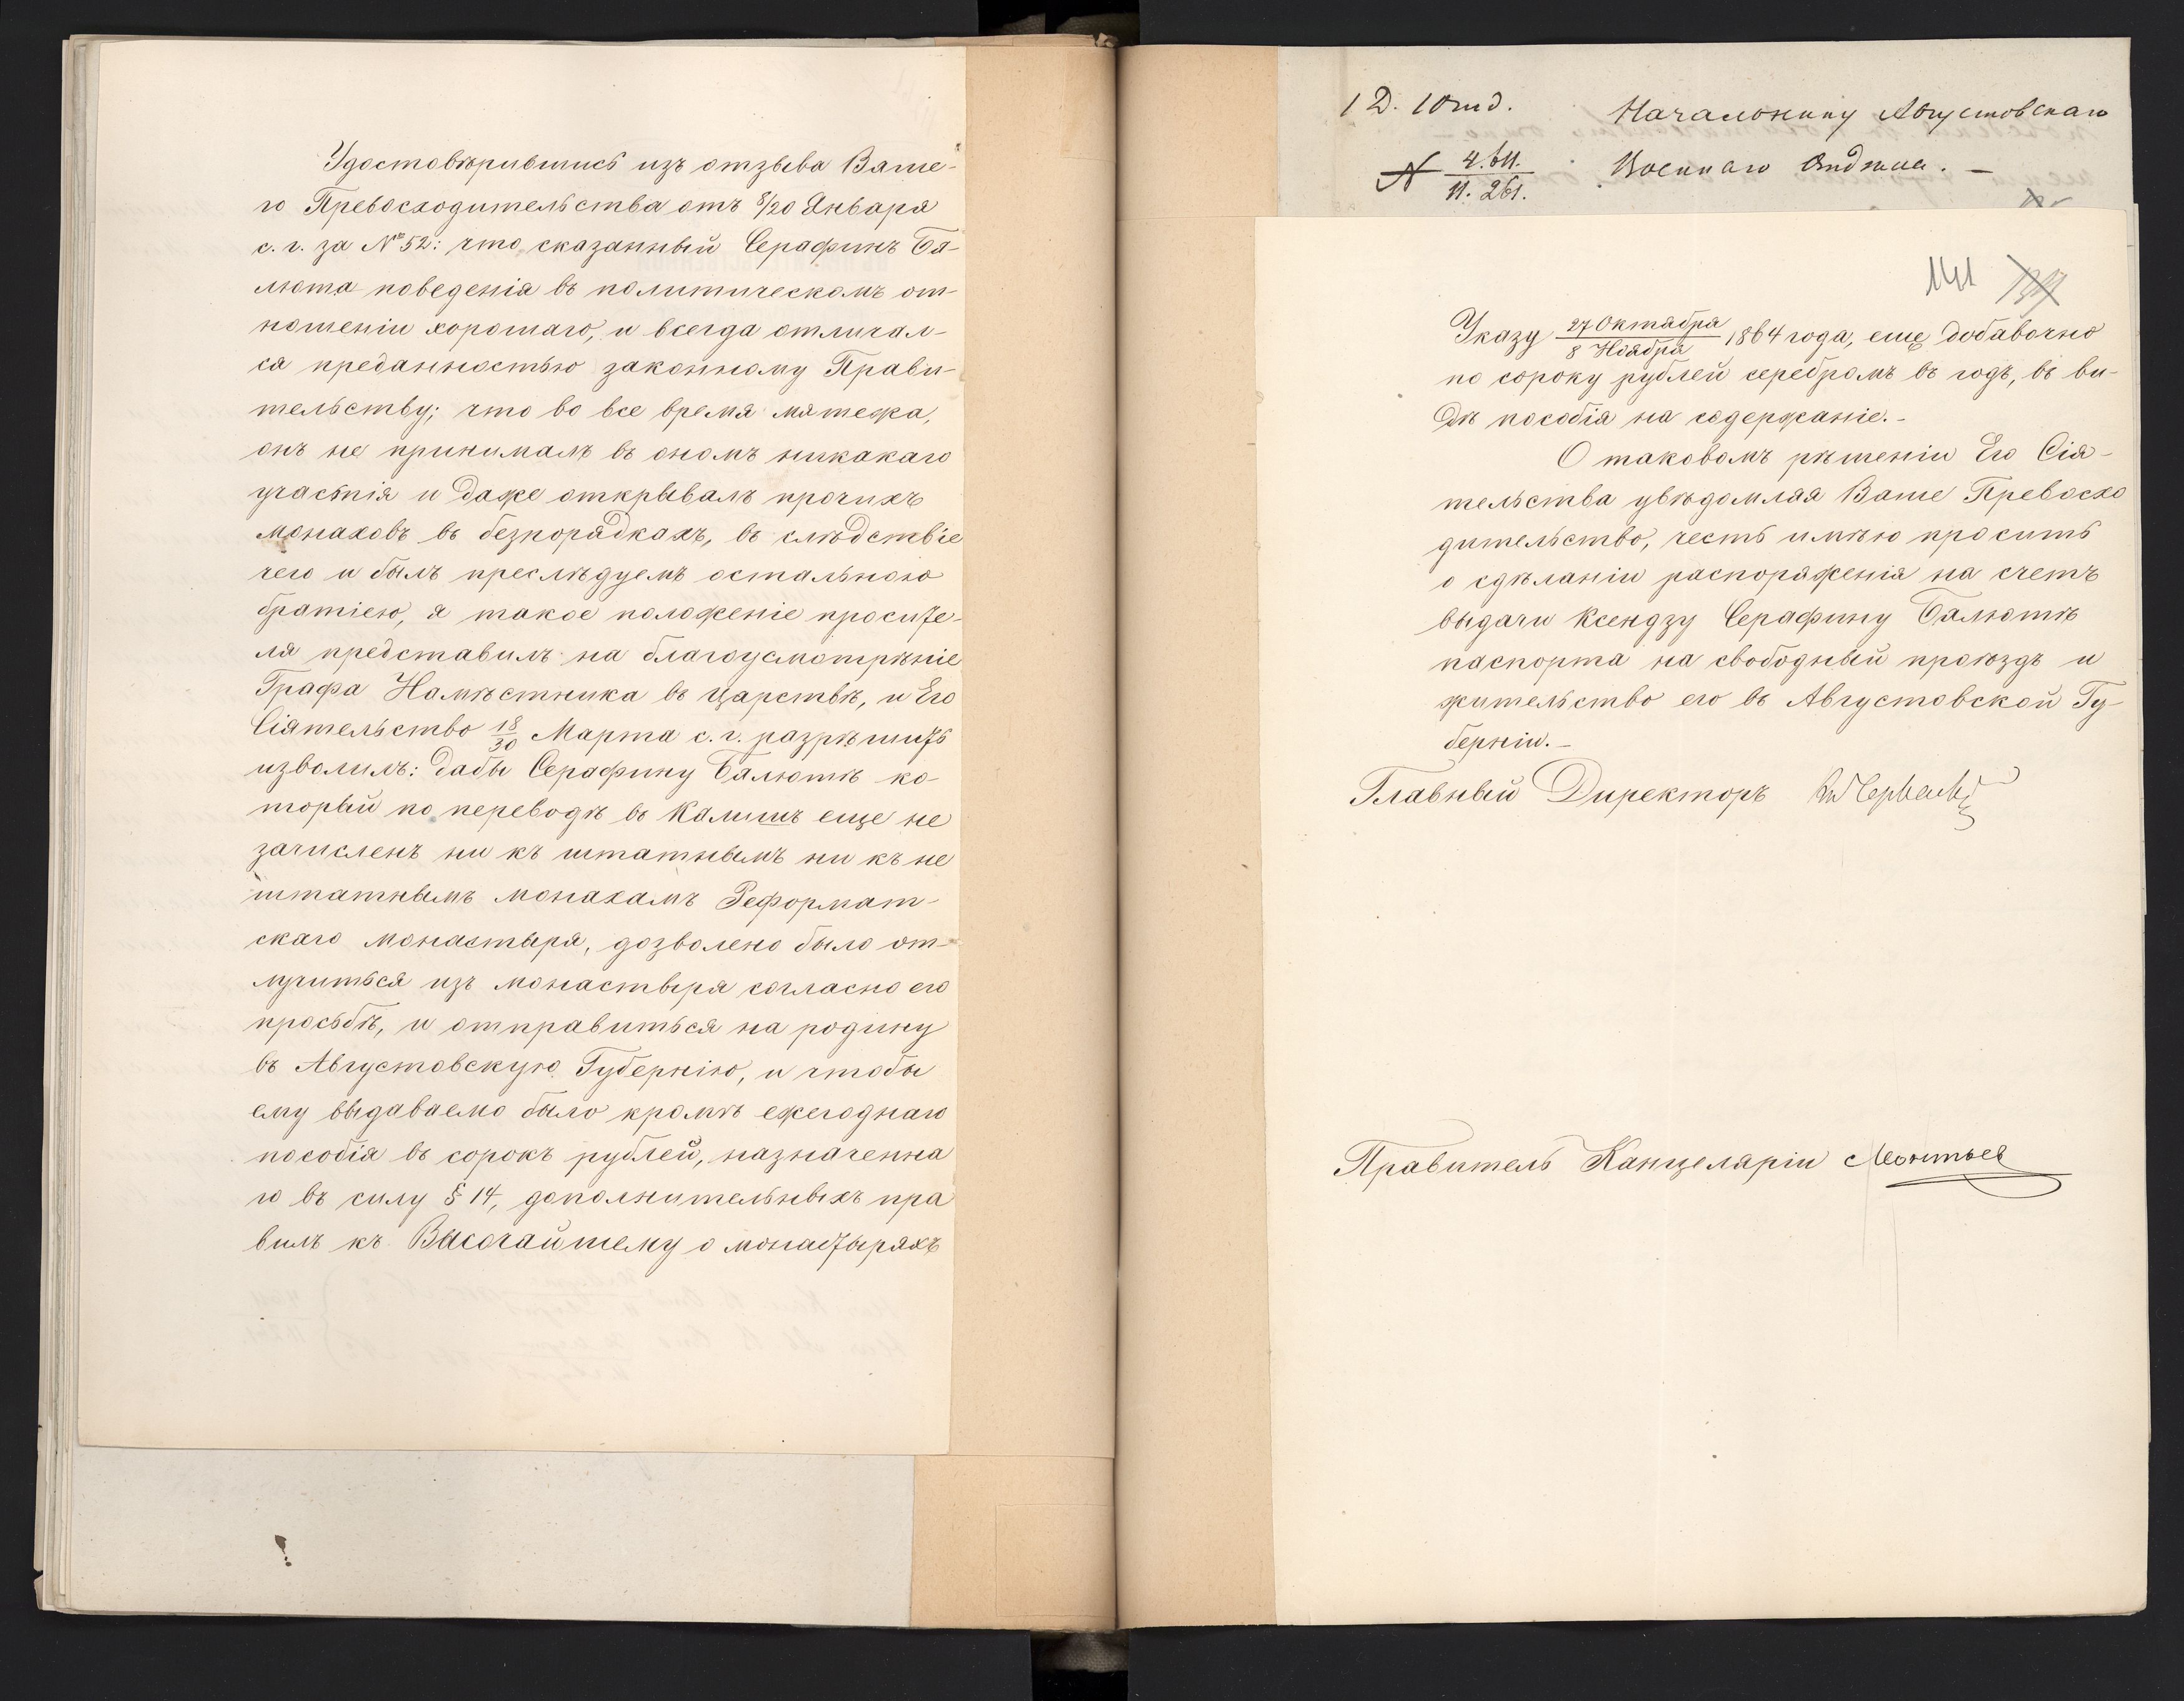 Удостовѣрившись изъ отзыва Ваше-
го Превосходительства отъ 8/20 Января
с. г. за № 52: что сказанный Серафинъ Ба-
люта поведенія въ политическомъ от-
ношеніи хорошаго, и всегда отличал-
ся преданностью законному Прави-
тельству; что во все время мятежа,
онъ не принималъ въ ономъ никакаго
участія и даже открывалъ прочихъ
монаховъ въ безпорядкахъ, въ слѣдствіе
чего и былъ преслѣдуемъ остальною
братіею, я такое положеніе просите-
ля представилъ на благоусмотрѣніе
Графа Намѣстника въ Царствѣ, и Его
Сіятельство 18/30 Марта с. г. разрѣшить
изволилъ: дабы Серафину Балютѣ ко-
торый по переводѣ въ Калишъ еще не
зачисленъ ни къ штатнымъ ни къ не
штатнымъ монахамъ Реформат-
скаго монастыря, дозволено было от-
лучиться изъ монастыря согласно его
просьбѣ, и отправиться на родину
въ Августовскую Губернію, и чтобы
ему выдаваемо было кромѣ ежегоднаго
пособія въ сорокъ рублей, назначенна
го въ силу § 14, дополнительныхъ пра
вилъ къ Высочайшему о монастыряхъ
1 Д. 1 Отд.
Начальнику Августовскаго
Военнаго Отдѣла. —
№ 4.611. / 11.261.
141
Указу 27 Октября / 8 Ноября 1864 года, еще добавочно
по сороку рублей серебромъ въ годъ, въ ви-
дѣ пособія на содержаніе.-
О таковомъ рѣшеніи Его Сія-
тельства увѣдомляя Ваше Превосхо
дительство, честь имѣю просить
о сдѣланіи распоряженія на счетъ
выдачи Ксендзу Серафину Балютѣ
паспорта на свободный проѣздъ и
жительство его въ Августовской Гу-
берніи.-
Главный Директоръ
Правитель Канцеляріи Леонтьев